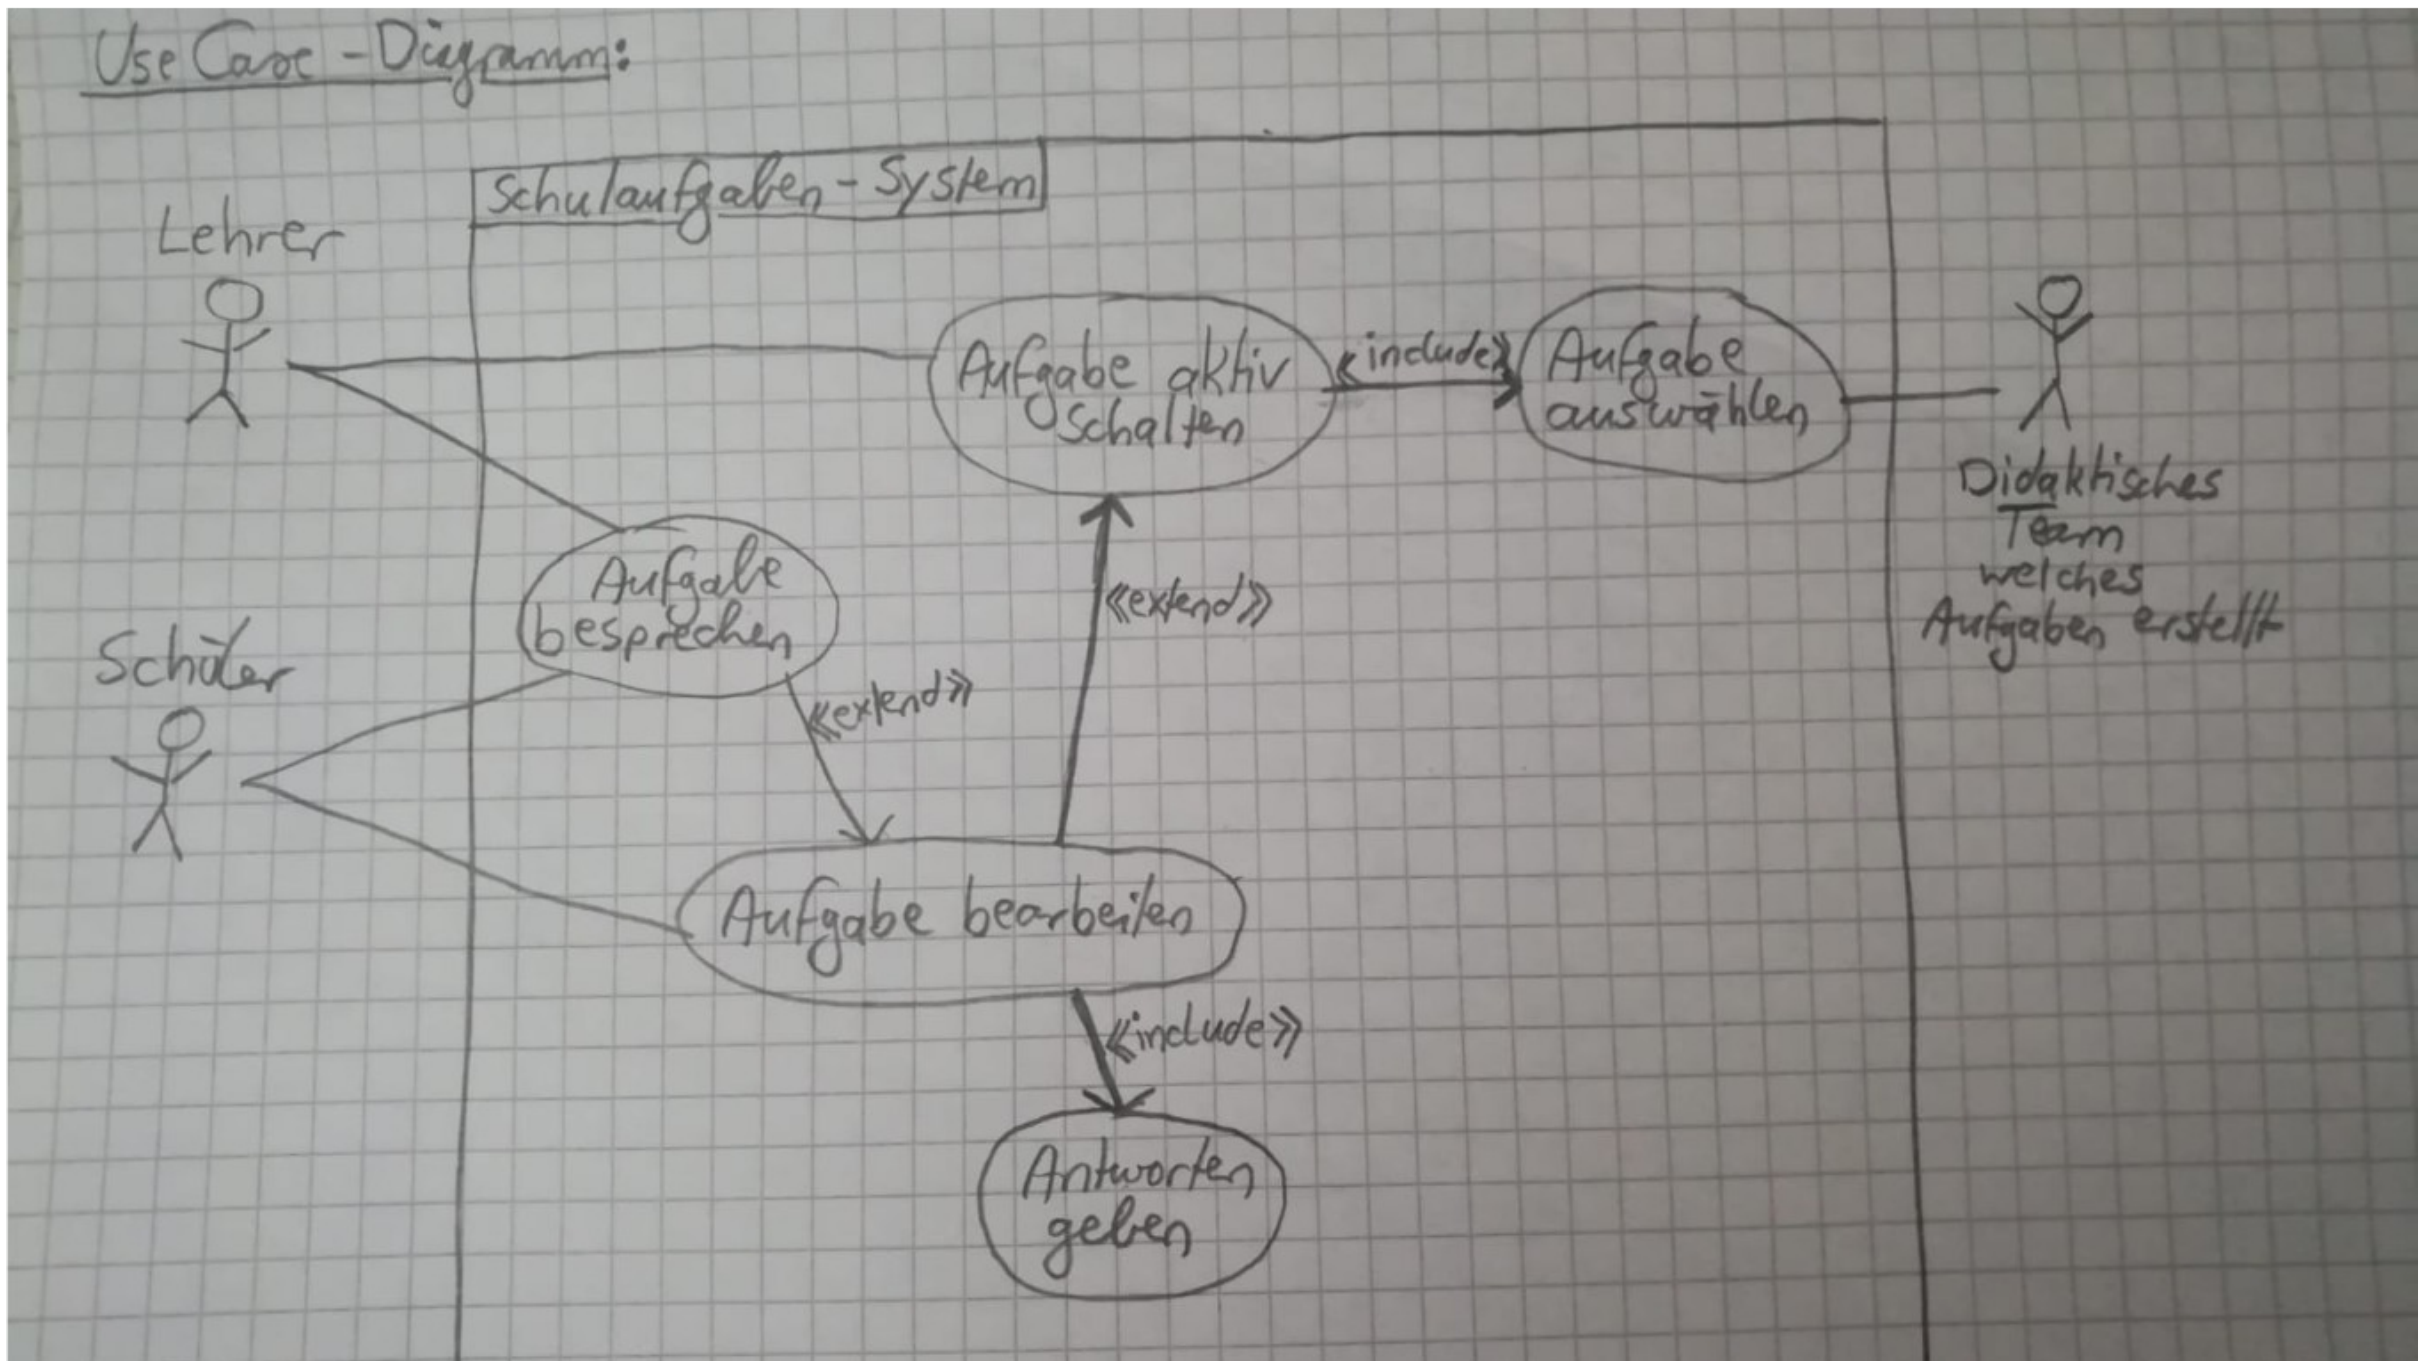 Use Case - Diagramm:
Schulaufgaben - System
Lehrer
Aufgabe aktiv
schalten
«include»
Aufgabe
auswählen
Didaktisches
Team
welches
Aufgaben erstellt
Aufgabe
besprechen
«extend»
Schüler
«extend»
Aufgabe bearbeiten
«include»
Antworten
geben